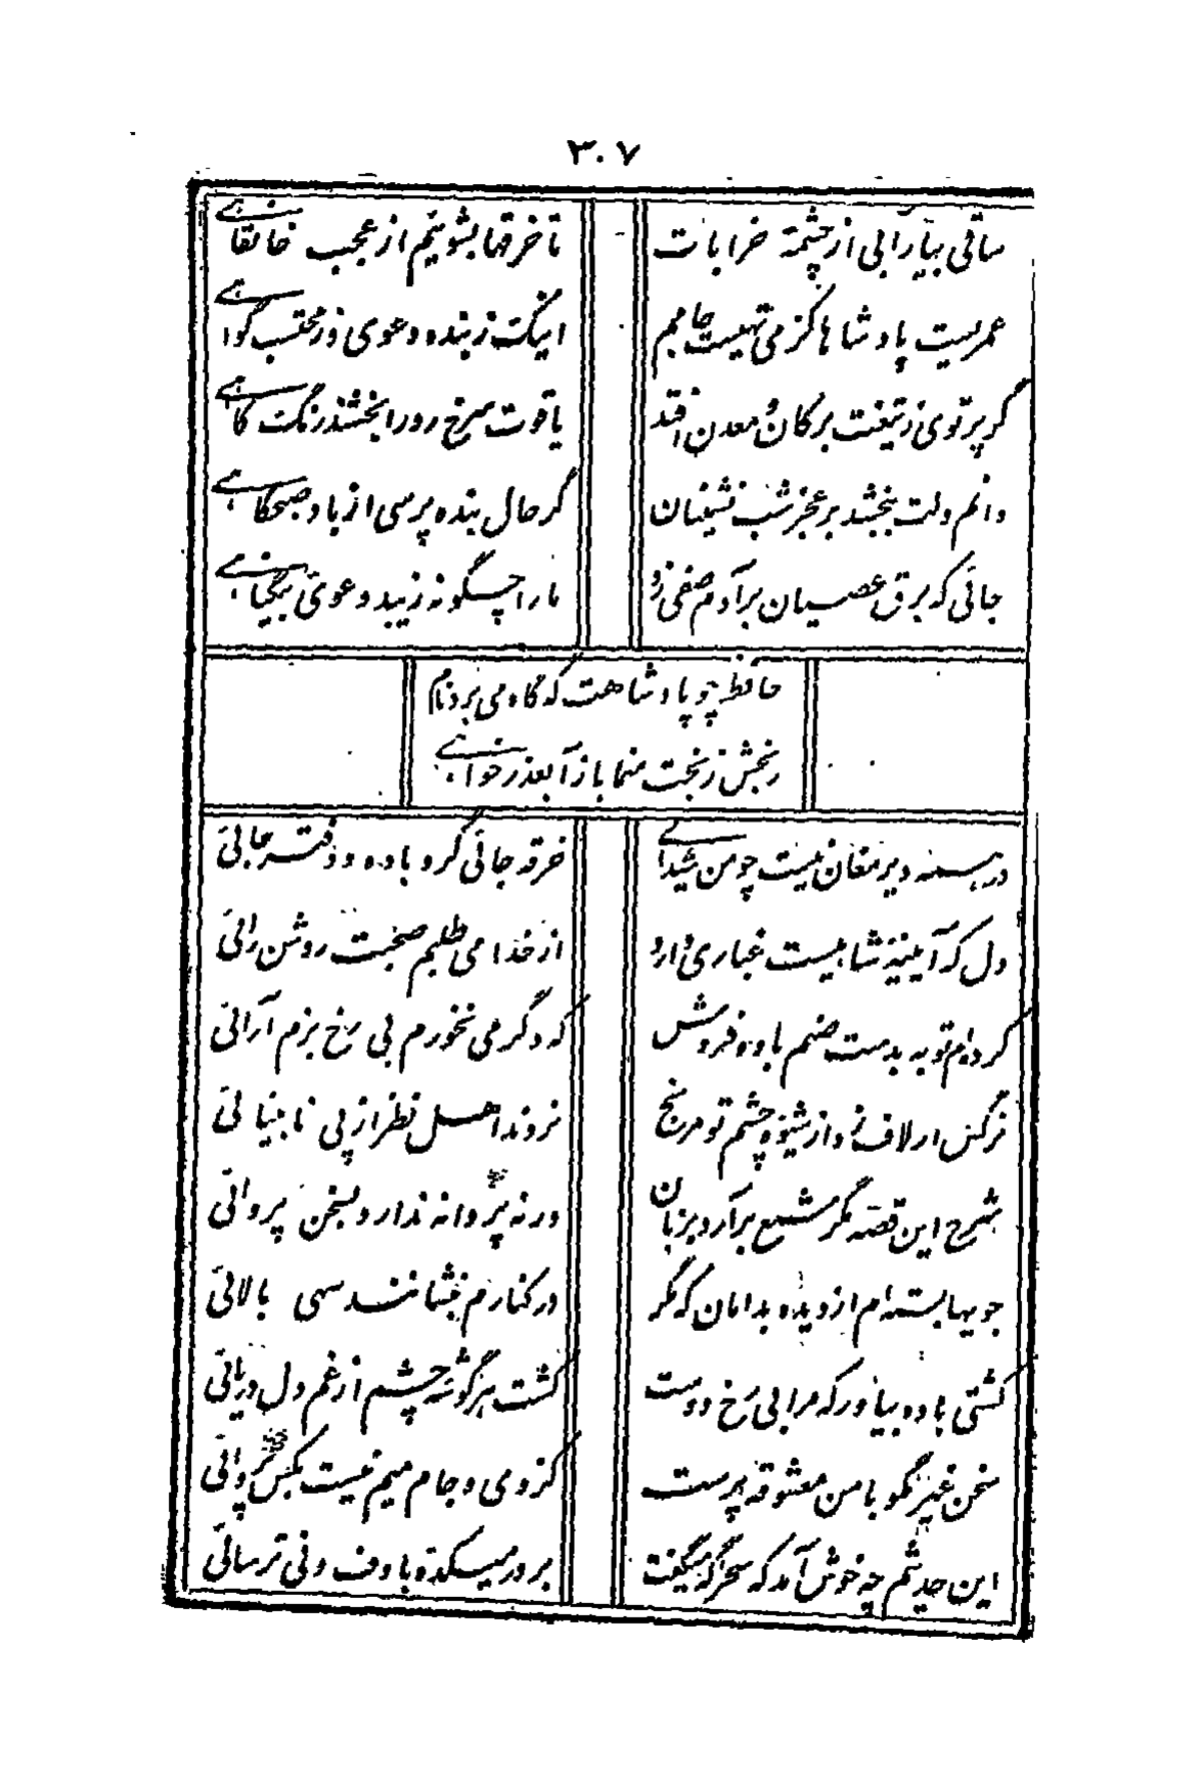 ۳۰۷
ساقی بیار آبی از چشمهٔ خرابات
تا خرقها بشوئیم از عجب خانقاهے
عمریست پادشاها کز می تهیست جامم
اینک ز بنده دعوی وز محتسب گواهے
گر پرتوی ز تیغت بر کان و معدن افتد
یاقوت سرخ رو را بخشند رنگ کاهے
دانم دلت ببخشد بر عجز شب نشینان
گر حال بنده پرسی از باد صبحگاهے
جائی که برق عصیان بر آدم صفی زد
ما را چگونه زیبد دعویٔ بیگناهے
حافظ چو پادشاهت که گاه می برد نام
رنجش ز بخت منما باز آ بعذر خواهے
در همه دیر مغان نیست چو من شیدائے
خرقه جائی گرو باده و دفتر جائی
دل که آیینهٔ شاهیست غباری دارد
از خدا می طلبم صحبت روشن رائی
کرده‌ام توبه بدست صنم باده فروش
که دگر می نخورم بی رخ بزم آرائی
نرگس ار لاف زد از شیوهٔ چشم تو مرنج
نروند اهل نظر از پی نابینائی
شرح این قصه مگر شمع برآرد بزبان
ورنه پروانه ندارد بسخن پروائی
جویها بسته‌ام از دیده بدامان که مگر
در کنارم بنشانند سهی بالائی
کشتی باده بیاور که مرا بی رخ دوست
گشت هر گوشهٔ چشم از غم دل دریائی
سخن غیر مگو با من معشوقه پرست
کز وی و جام میم نیست بکس پروائی
این حدیثم چه خوش آمد که سحرگه میگفت
بر در میکدهٔ با دف و نی ترسائی